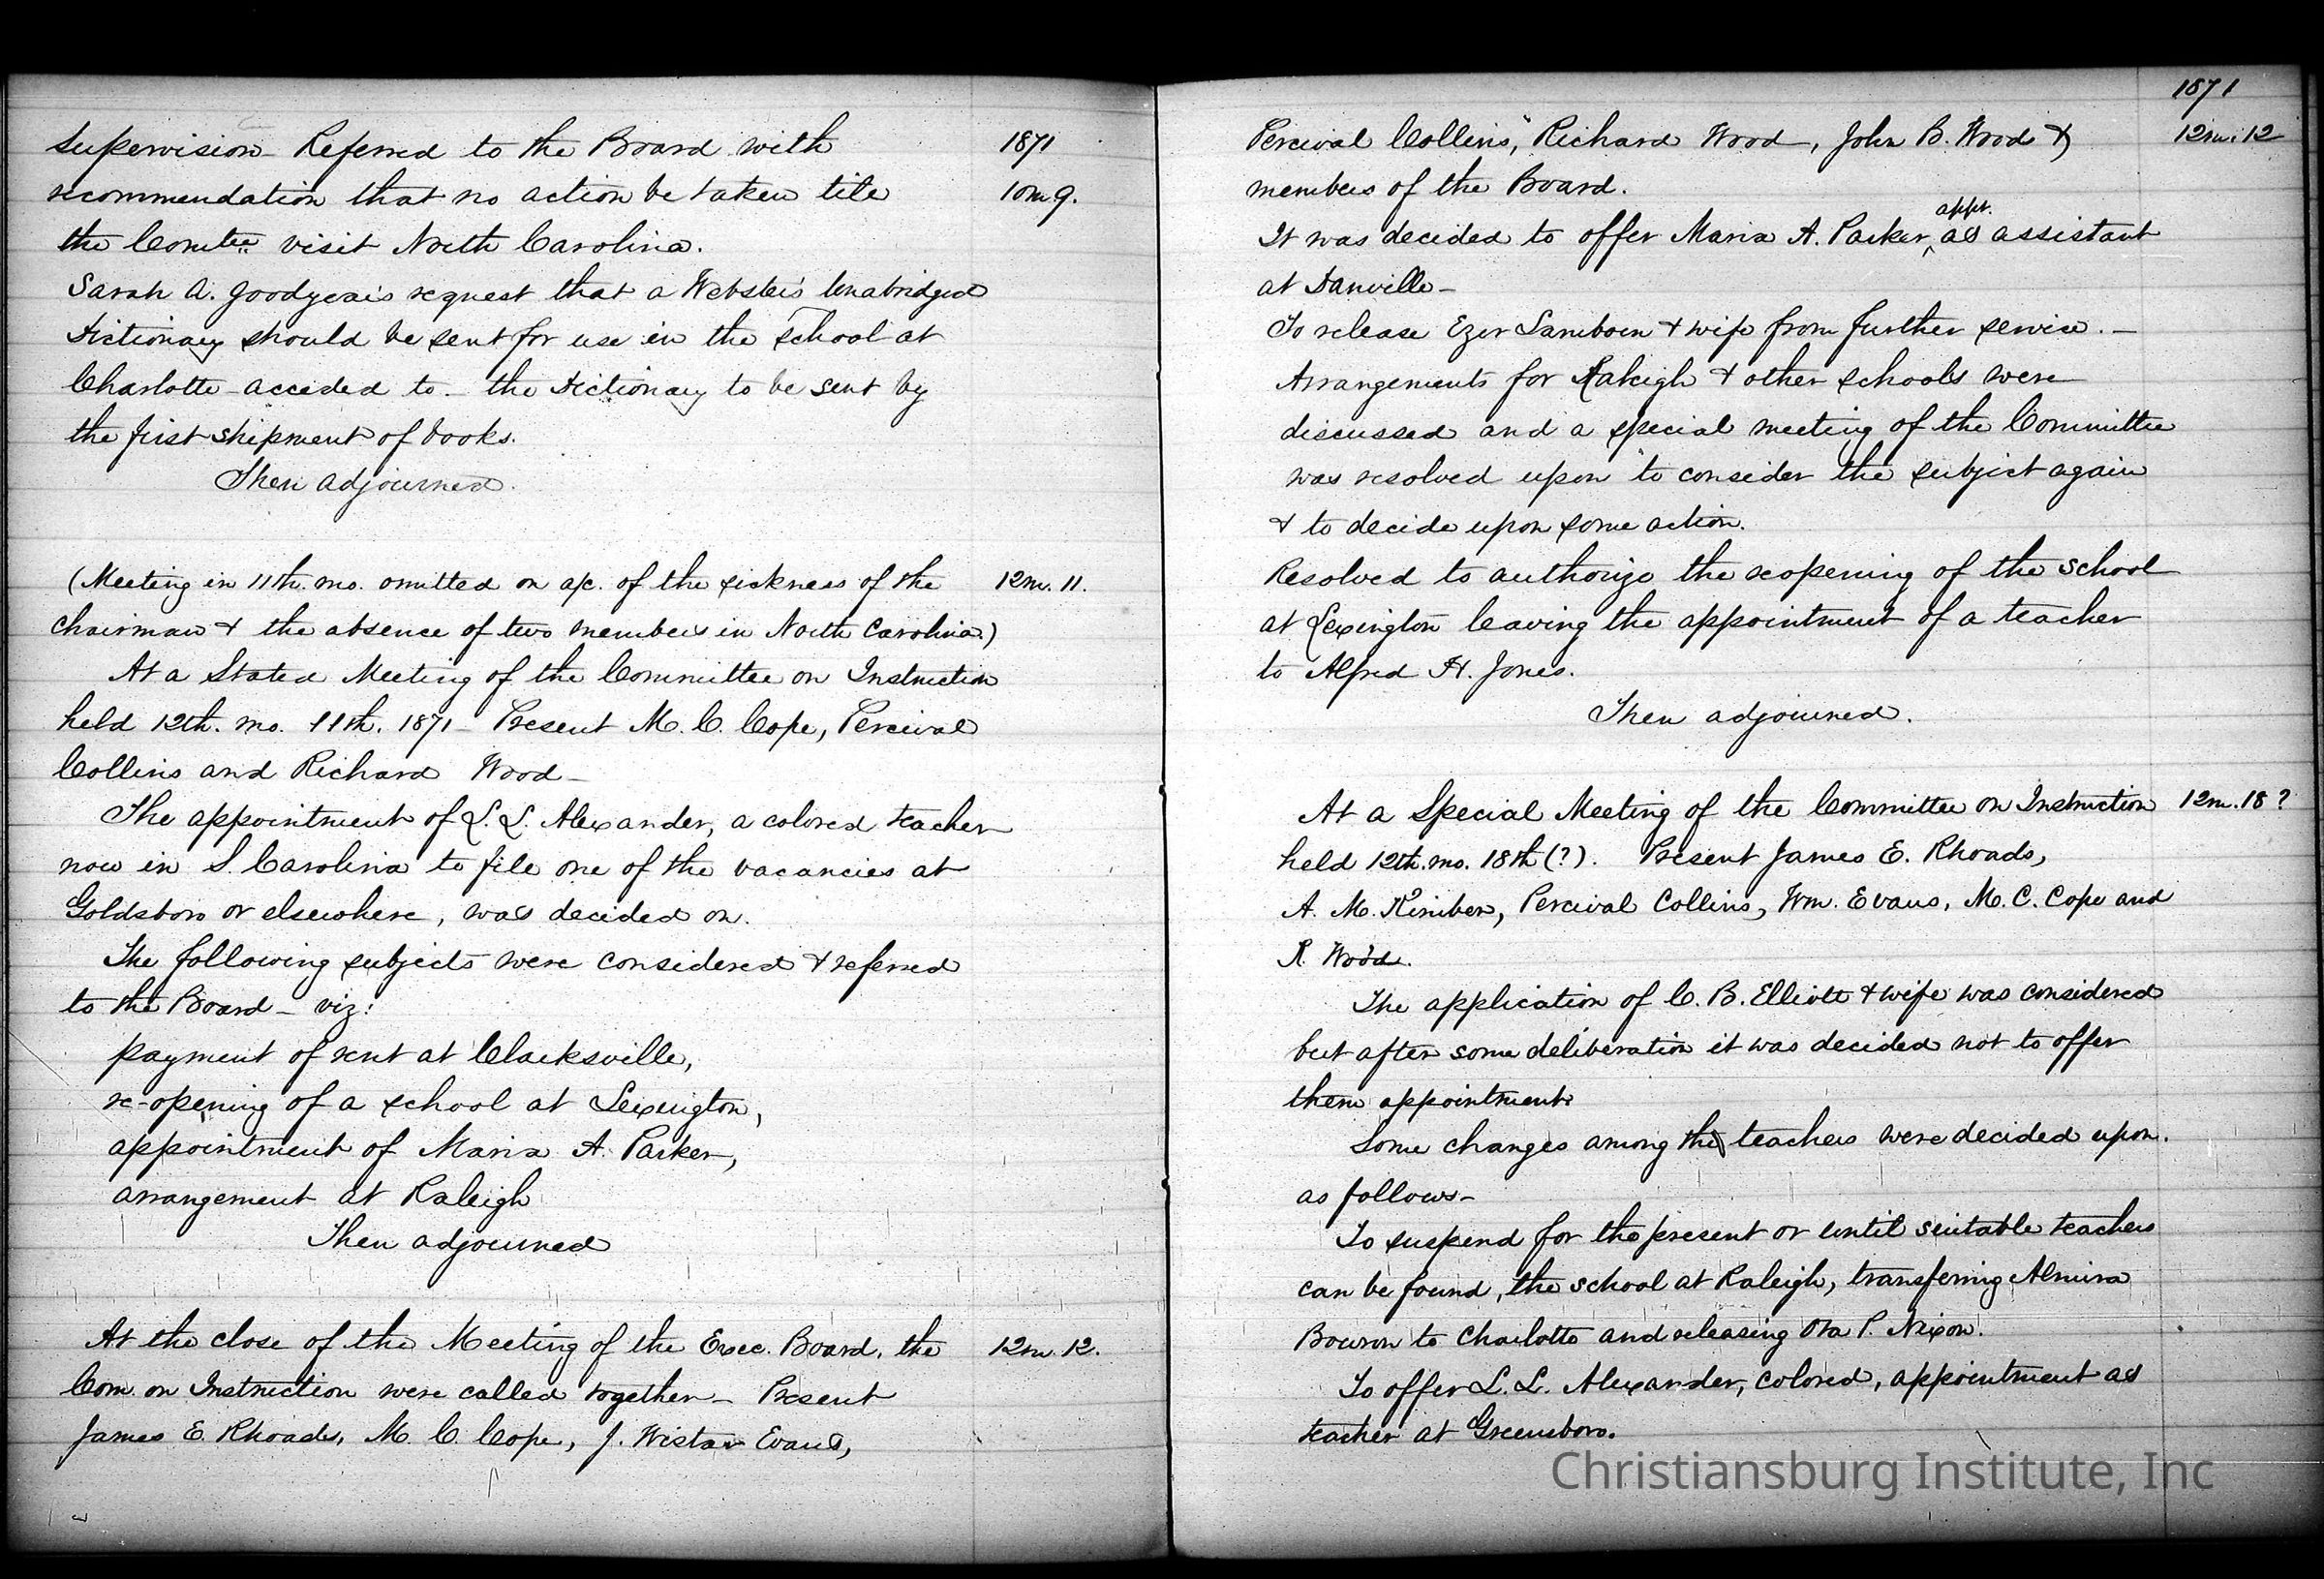 1871
10m9.
supervision – Referred to the Board with
recommendation that no action be taken till
the Comtee visit North Carolina.
Sarah A. Goodyear's request that a Webster's Unabridged
Dictionary should be sent for use in the school at
Charlotte – acceded to – the Dictionary to be sent by
the first shipment of books.
Then adjourned.
(Meeting in 11th. mo. omitted on a/c. of the sickness of the
12m. 11.
chairman & the absence of two members in North Carolina.)
At a Stated Meeting of the Committee on Instruction
held 12th. mo. 11th. 1871 – Present M. C. Cope, Percival
Collins and Richard Wood –
The appointment of L. L. Alexander, a colored teacher
now in S. Carolina to fill one of the vacancies at
Goldsboro or elsewhere, was decided on.
The following subjects were considered & referred
to the Board – viz:
payment of rent at Clarksville,
re-opening of a school at Lexington,
appointment of Maria A. Parker,
arrangement at Raleigh
Then adjourned
At the close of the Meeting of the Exec. Board, the
12m. 12.
Com. on Instruction were called together – Present
James E. Rhoads, M. C. Cope, J. Wistar Evans,
1871
12m. 12
Percival Collins, Richard Wood, John B. Wood &
members of the Board.
appt.
It was decided to offer Maria A. Parker ‸ as assistant
at Danville –
To release Ezer Lamborn & wife from further service. –
Arrangements for Raleigh & other schools were
discussed and a special meeting of the Committee
was resolved upon to consider the subject again
& to decide upon some action.
Resolved to authorize the reopening of the school
at Lexington leaving the appointment of a teacher
to Alfred H. Jones.
Then adjourned.
At a Special Meeting of the Committee on Instruction
12m. 18?
held 12th. mo. 18th (?). Present James E. Rhoads,
A. M. Kimber, Percival Collins, Wm. Evans, M. C. Cope and
R. Wood.
The application of C. B. Elliott & wife was considered
but after some deliberation it was decided not to offer
them appointment.
Some changes among the teachers were decided upon.
as follows –
To suspend for the present or until suitable teachers
can be found, the school at Raleigh, transferring Almira
Bowron to Charlotte and releasing P. Nixon.
To offer L. L. Alexander, colored, appointment as
teacher at Greensboro.
Christiansburg Institute, Inc